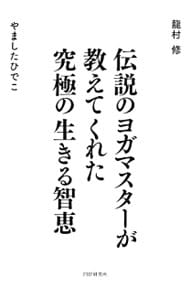 龍村 修
伝説のヨガマスターが
教えてくれた
究極の生きる智恵
やましたひでこ
PHP研究所